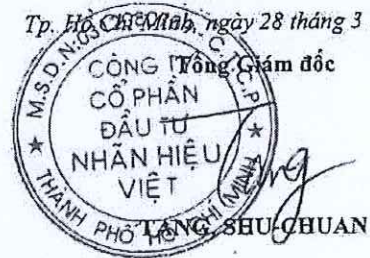 Tp. Hồ Chí Minh, ngày 28 tháng 3
Tổng Giám đốc
M.S.D.N:03
C.T.C.P
CÔNG T
CỔ PHẦN
ĐẦU TƯ
NHÃN HIỆU
VIỆT
THÀNH PHỐ HỒ CHÍ MINH
TANG, SHU-CHUAN